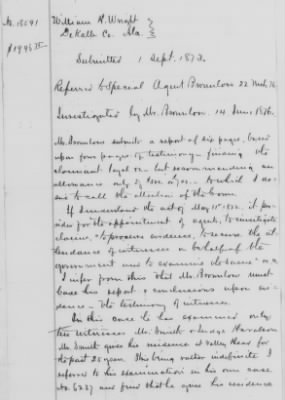 No. 18041
$1945 25
William H. Wright
DeKalb Co. Ala.
Submitted 1 Sept. 1873.
Referred to Special Agent Brownlow 22 Mch 76
Investigated by Mr. Brownlow. 14 June 1876.
Mr. Brownlow submits a report of six pages, based
upon four pages of testimony - finding the
claimant loyal - but recommending an
allowance only of - to which I de-
sire to call the attention of the
If I understand the act of May 11" 1872. it pro-
vides for the appointment of agents, to investigate
claims, "to procure evidence, to secure the at-
tendance of witnesses on behalf of the
government and to examine claims"
I infer from this that Mr. Brownlow must
base his report & conclusions upon evi-
dence - the testimony of witnesses.
In this case he has examined only
two witnesses Mr. Smith & Judge
Mr. Smith gives his residence at Valley Head for
the past 25 years. This being rather indefinite I
referred to his examination in his own case
No. 6237 and find that he gives his residence